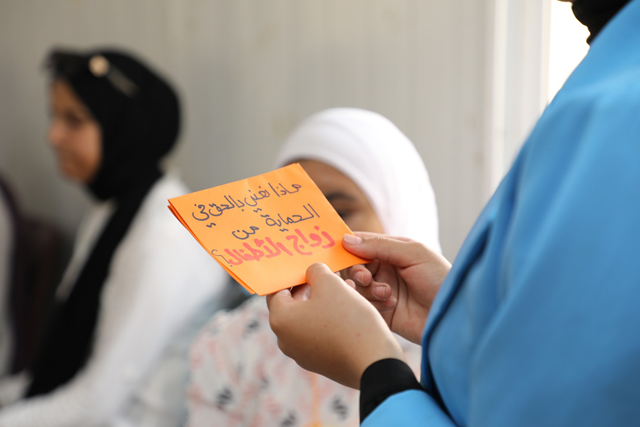 ماذا نعني بالحق في
الحماية من
زواج الأطفال؟